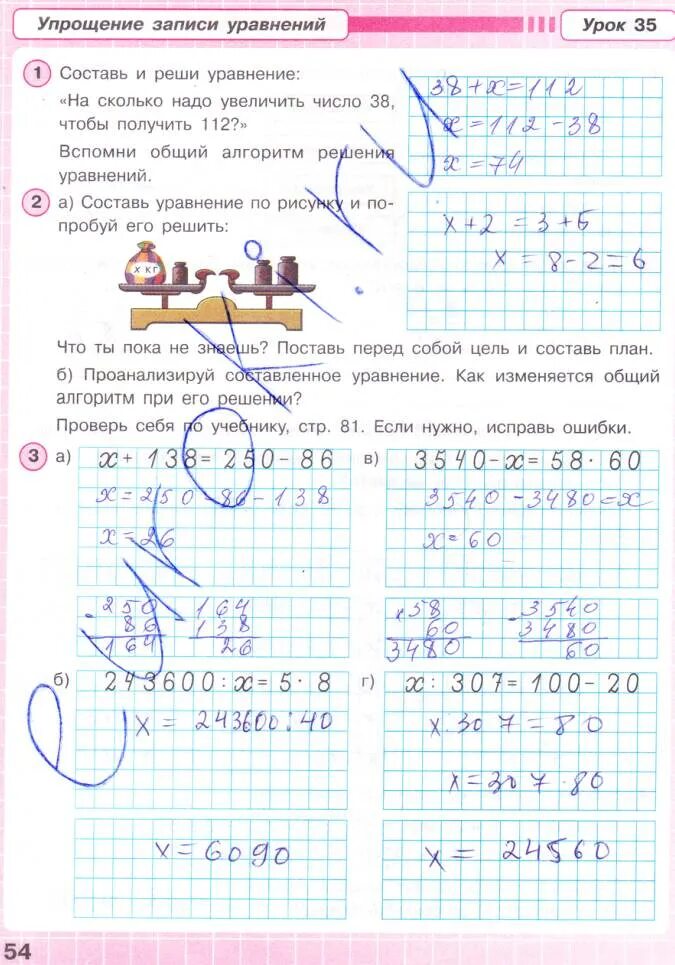 Упрощение записи уравнений
Урок 35
1 Составь и реши уравнение:
«На сколько надо увеличить число 38,
чтобы получить 112?»
Вспомни общий алгоритм решения
уравнений.
38+x=112
x=112-38
x=74
2 а) Составь уравнение по рисунку и по-
пробуй его решить:
x кг
x+2=3+5
x=8-2=6
Что ты пока не знаешь? Поставь перед собой цель и составь план.
б) Проанализируй составленное уравнение. Как изменяется общий
алгоритм при его решении?
Проверь себя по учебнику, стр. 81. Если нужно, исправь ошибки.
3 а) x+138=250-86
x=250-86-138
x=26
-250
86
164
-164
138
26
в) 3540-x=58·60
3540-3480=x
x=60
x58
60
3480
-3540
3480
60
б) 243600:x=5·8
x=243600:40
x=6090
г) x:307=100-20
x:307=80
x=307·80
x=24560
54